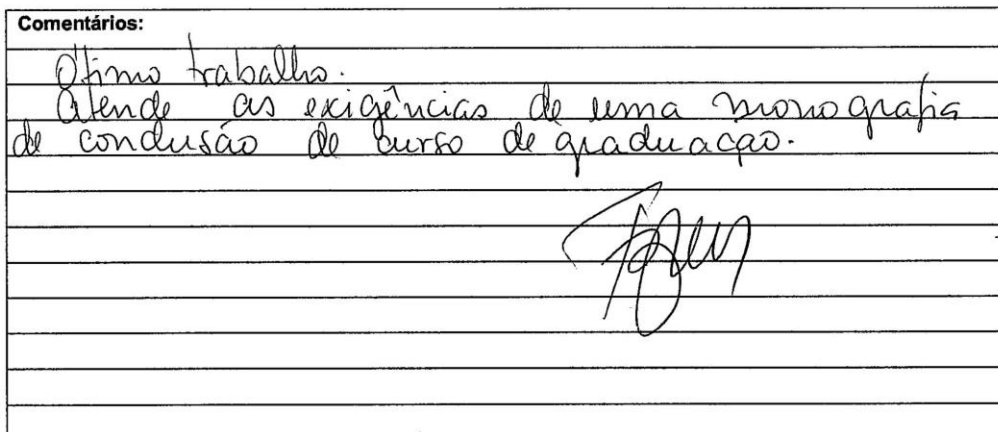 Comentários:
Ótimo trabalho.
Atende as exigências de uma monografia
de conclusão de curso de graduação.